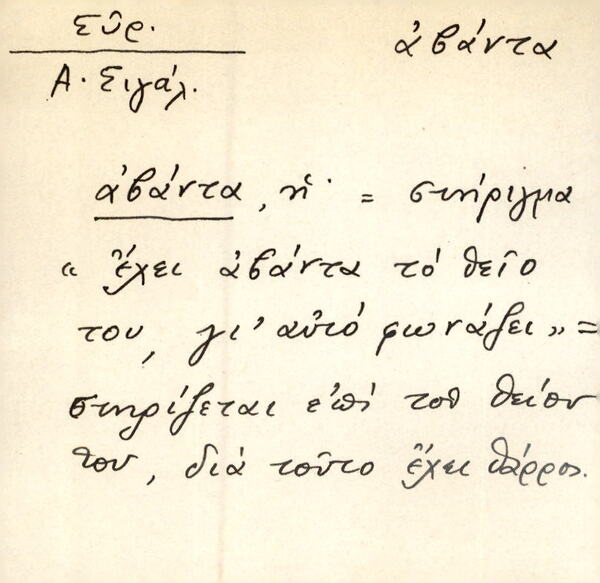 Σῦρ. ἀβάντα
Α. Σιγάλ.
ἀβάντα, ἡ· = στήριγμα
« Ἔχει ἀβάντα τὸ θεῖο
του, γι' αὐτό φωνάζει » =
στηρίζεται ἐπί τοῦ θείου
του, διά τοῦτο ἔχει θάρρος.